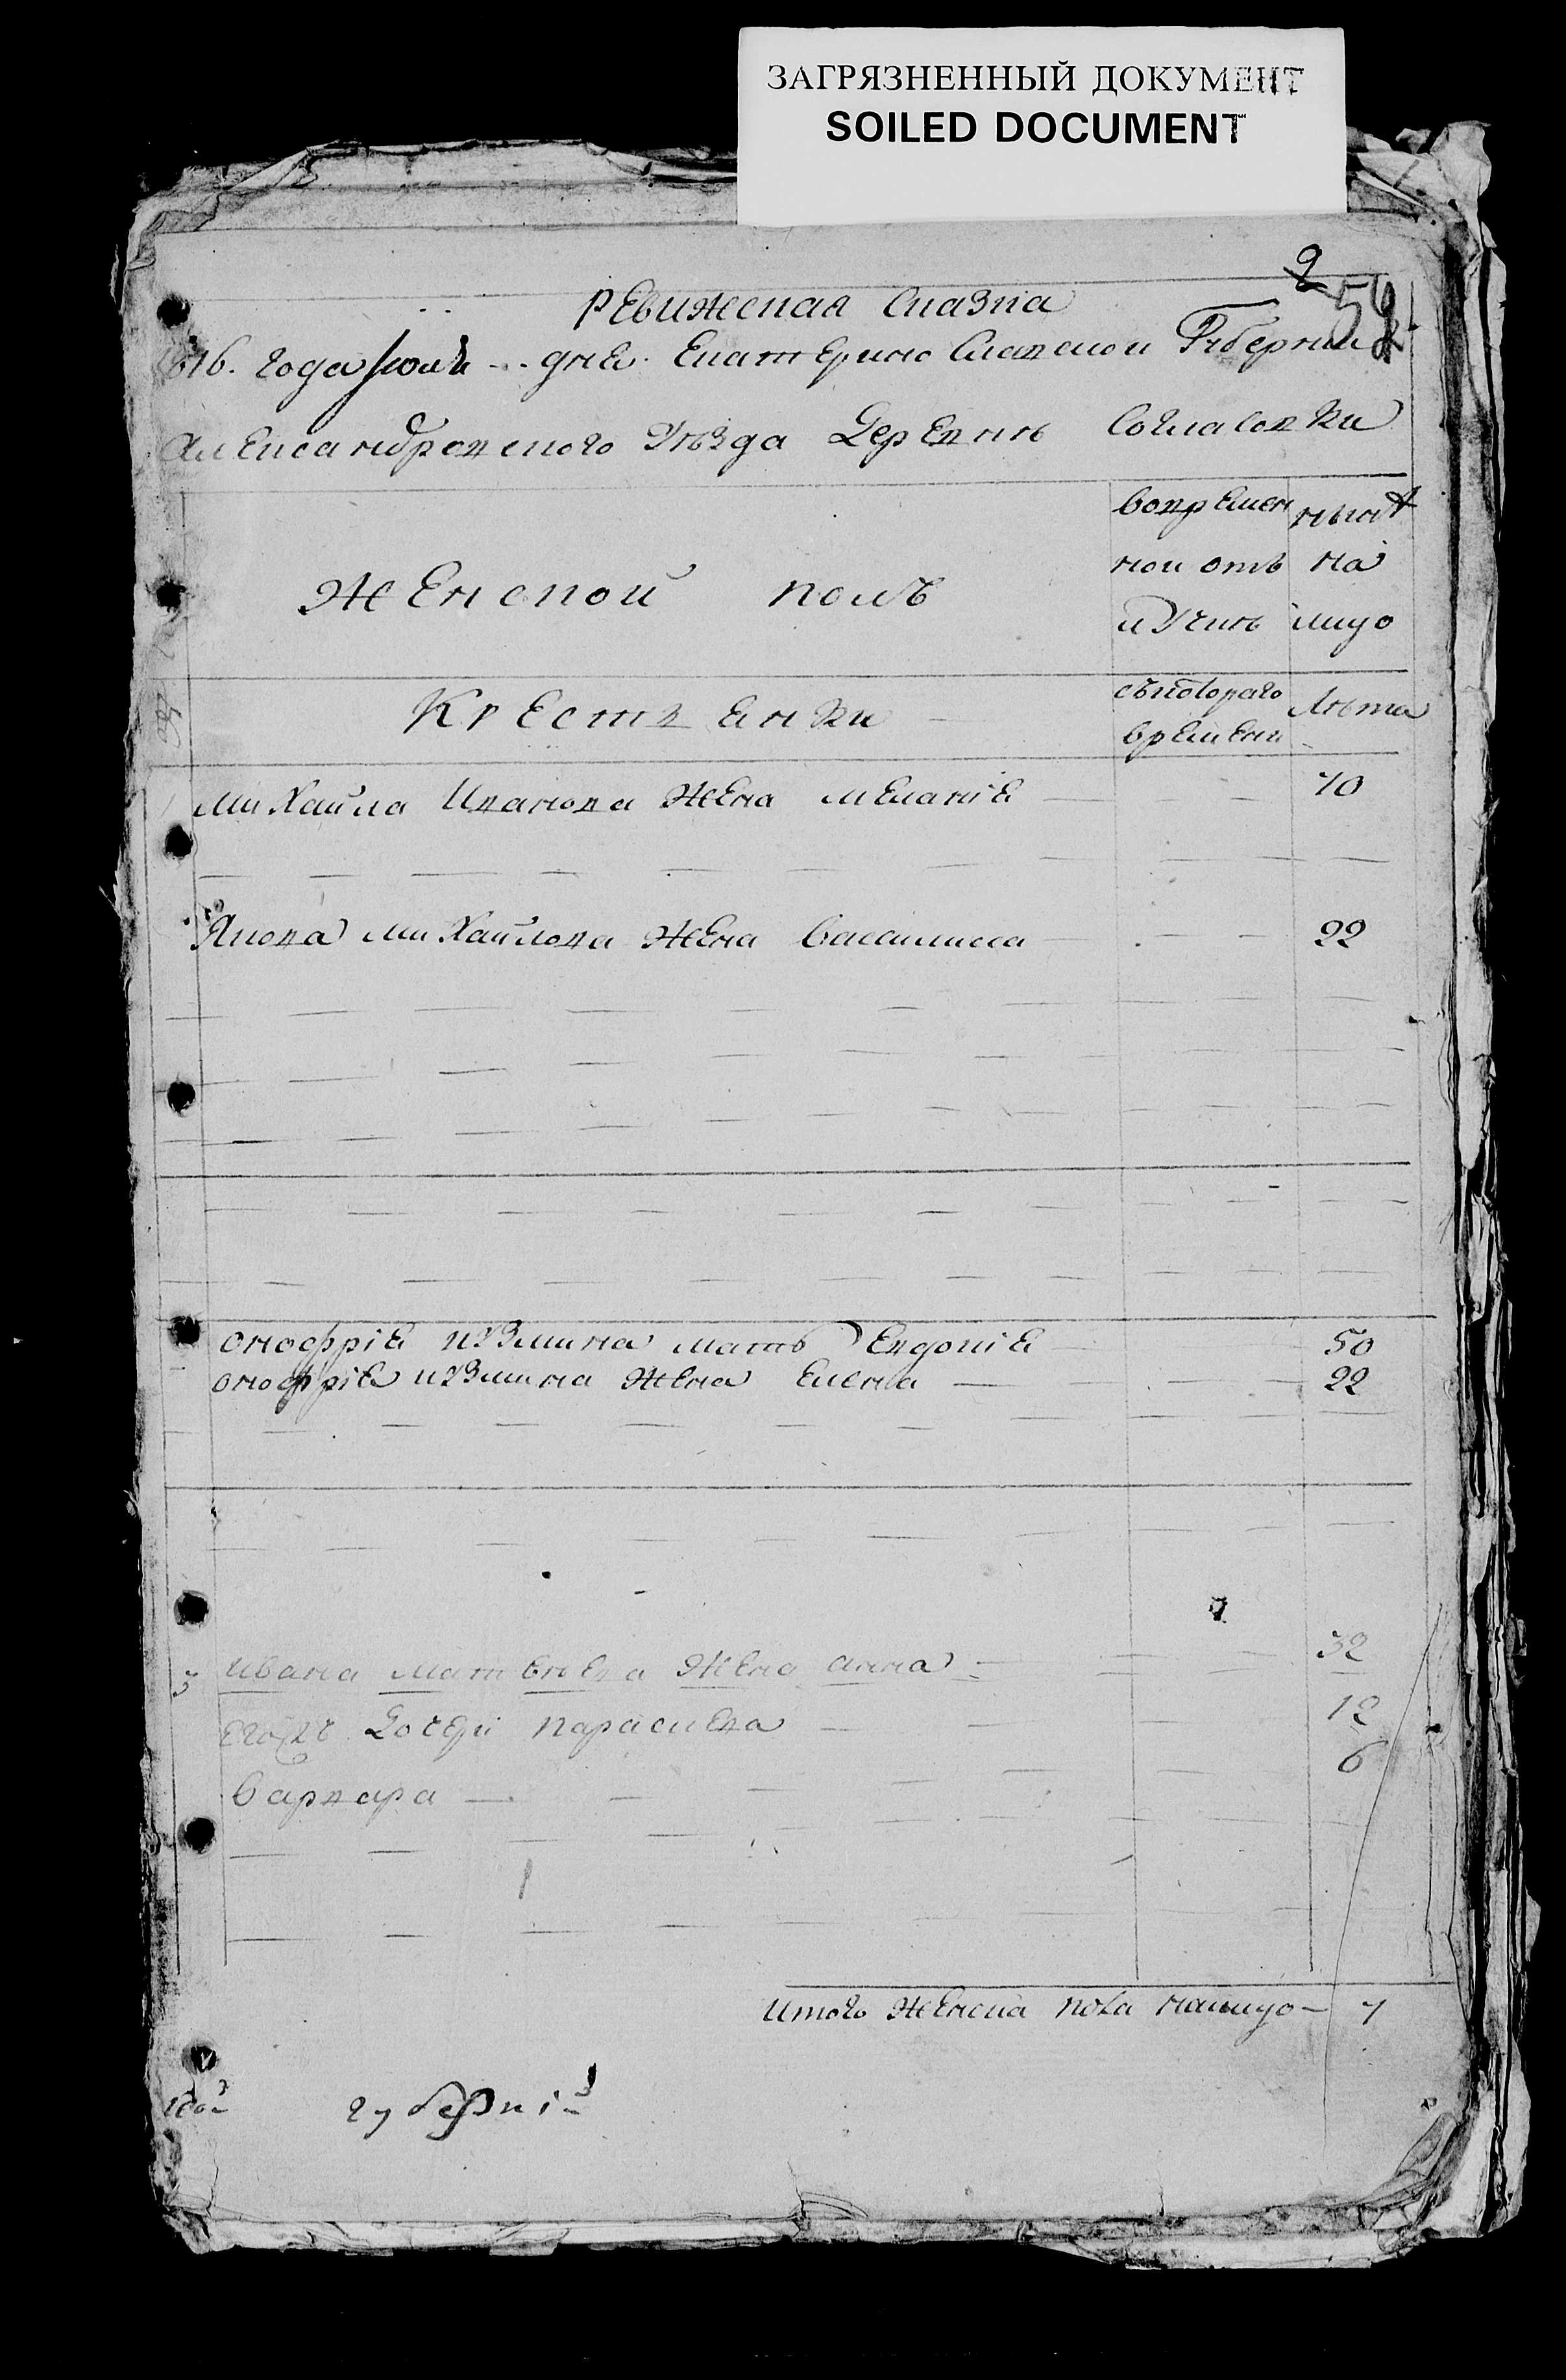 ЗАГРЯЗНЕННЫЙ ДОКУМЕНТ
SOILED DOCUMENT
9
59
Ревижская Сказка
1816. года июля дня Екатеринославской Губернии
Александровского Уѣзда Деревни Согласовки
Женской полъ
вовремен
ной отъ
лучкѣ
нынѣ
на
лицо
Крестьянки
съкотораго
времени
Лѣта
Михайла Иванова жена Меланіе
70
Якова Михайлова жена Василиса
22
Онофріе Кузмина мать Евдокіе
50
Онофріе Кузмина жена Елена
22
3
Ивана Матвѣева жена анна
32
Дочери Параскева
12
Варвара
6
Итого женска пола налицо 7
губерніи